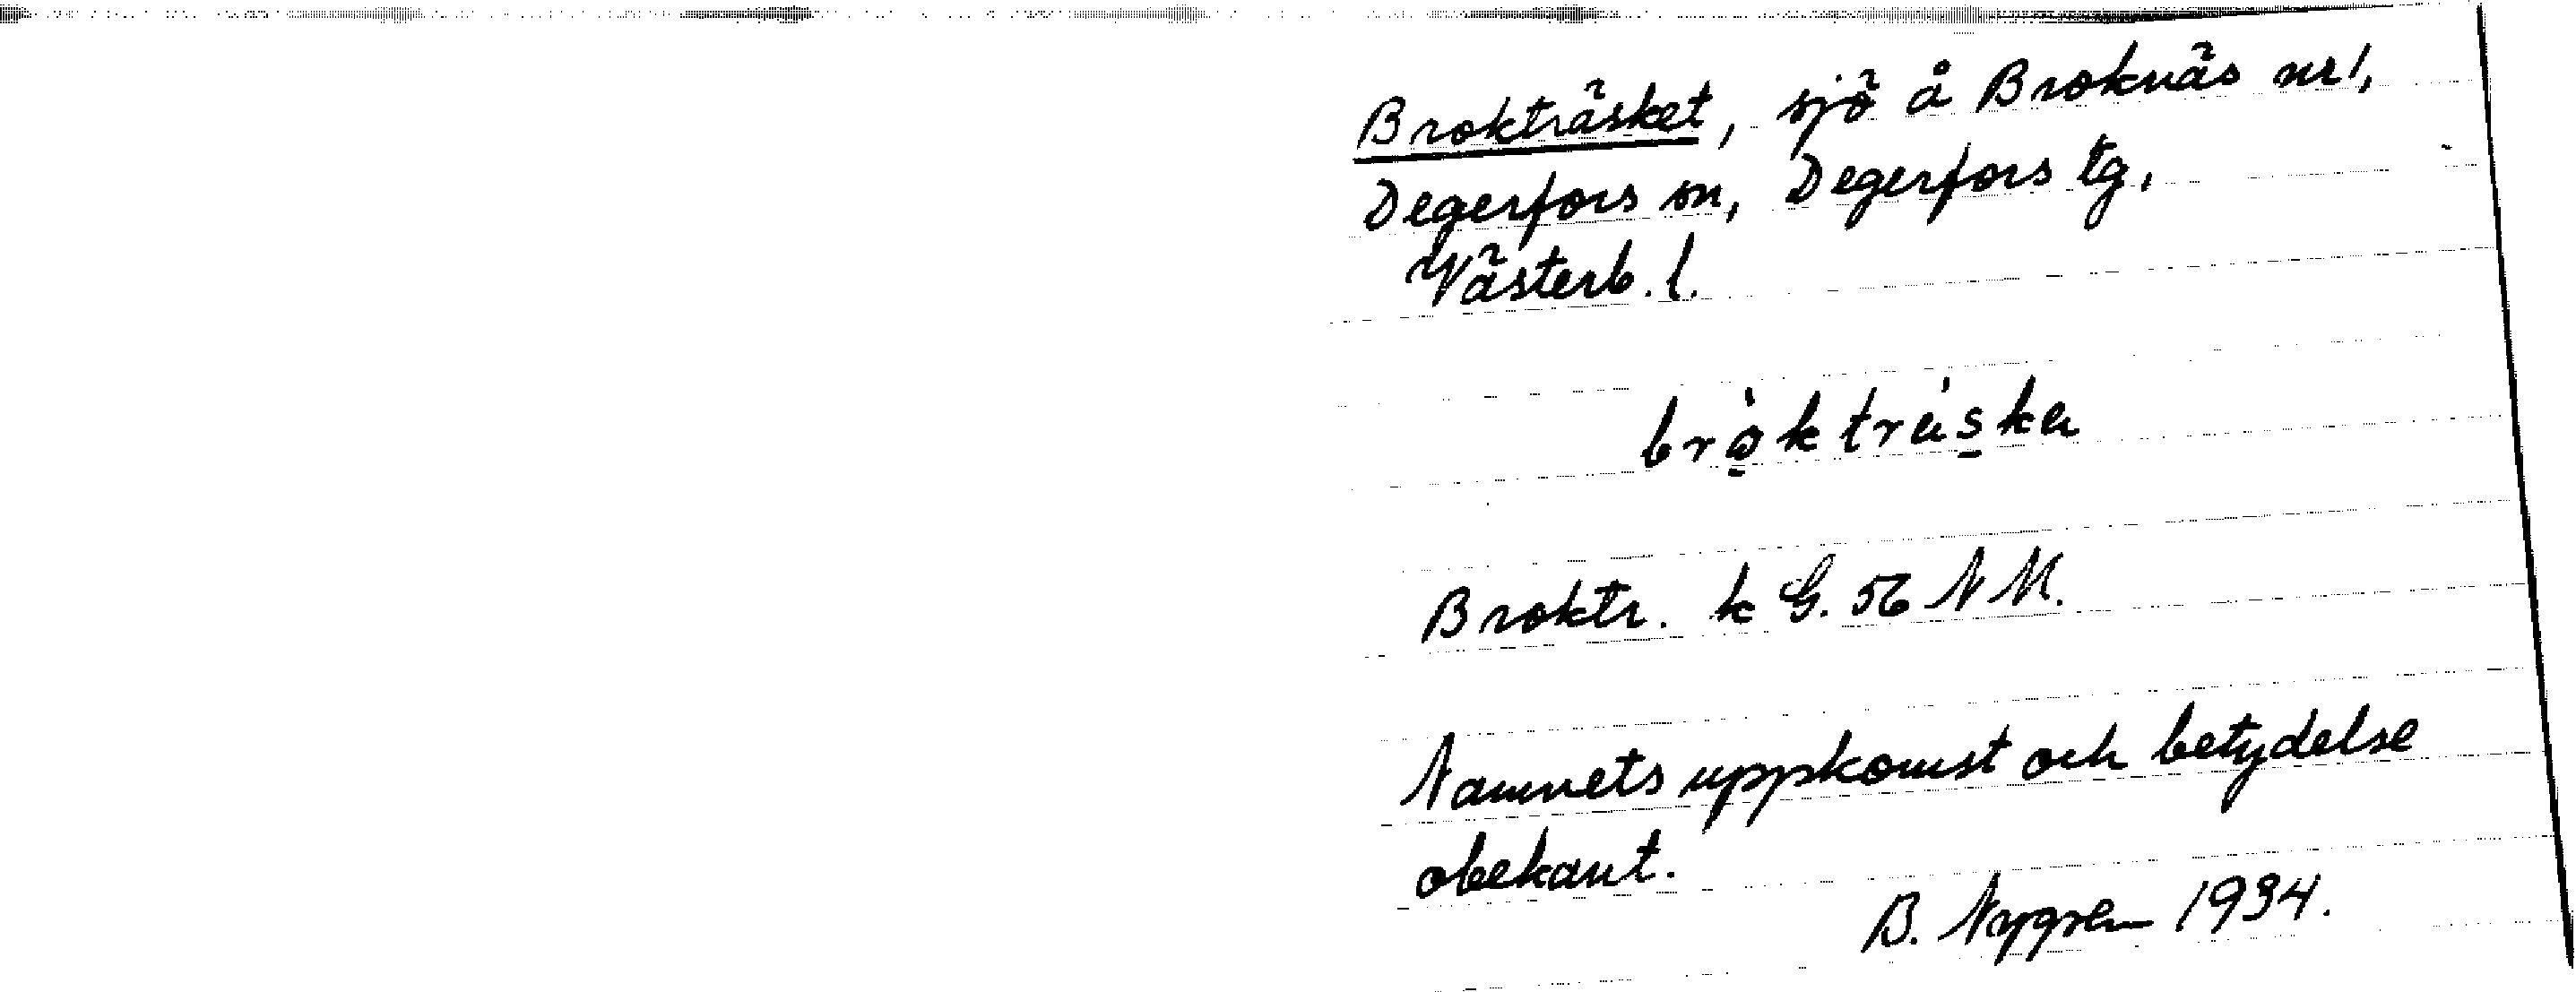 Brokträsket, sjö å Broknäs nr 1,
Degerfors sn, Degerfors tg,
Västerb. l.
brò̱ktrás̱ka
Broktr. k G. 56 NM.
Namnets uppkomst och betydelse
obekant.
B. Nygren 1934.